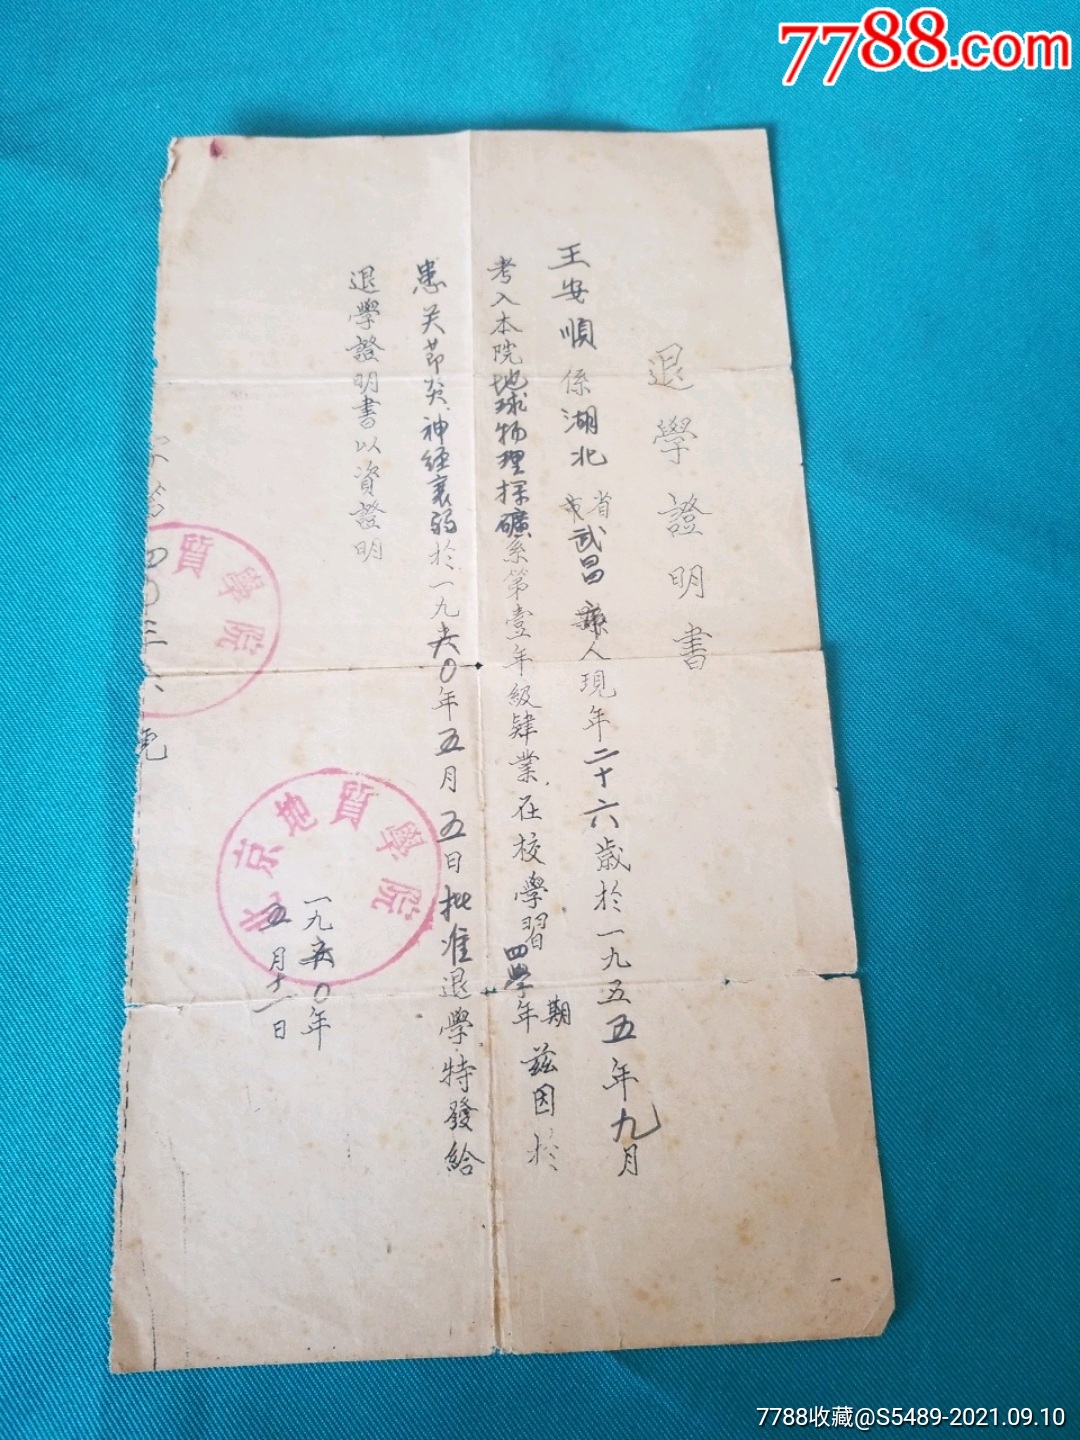 7788.com
退學證明書
王安順係湖北省市武昌縣人現年二十六歲於一九五五年九月
考入本院地球物理探礦系第壹年級肄業,在校學習四學年期茲因於
患关節炎、神经衰弱於一九六〇年五月五日批准退學特發給
退學證明書以資證明
一九六〇年
五月十一日
北京地質學院
質學院
四〇三六号
7788收藏@S5489-2021.09.10